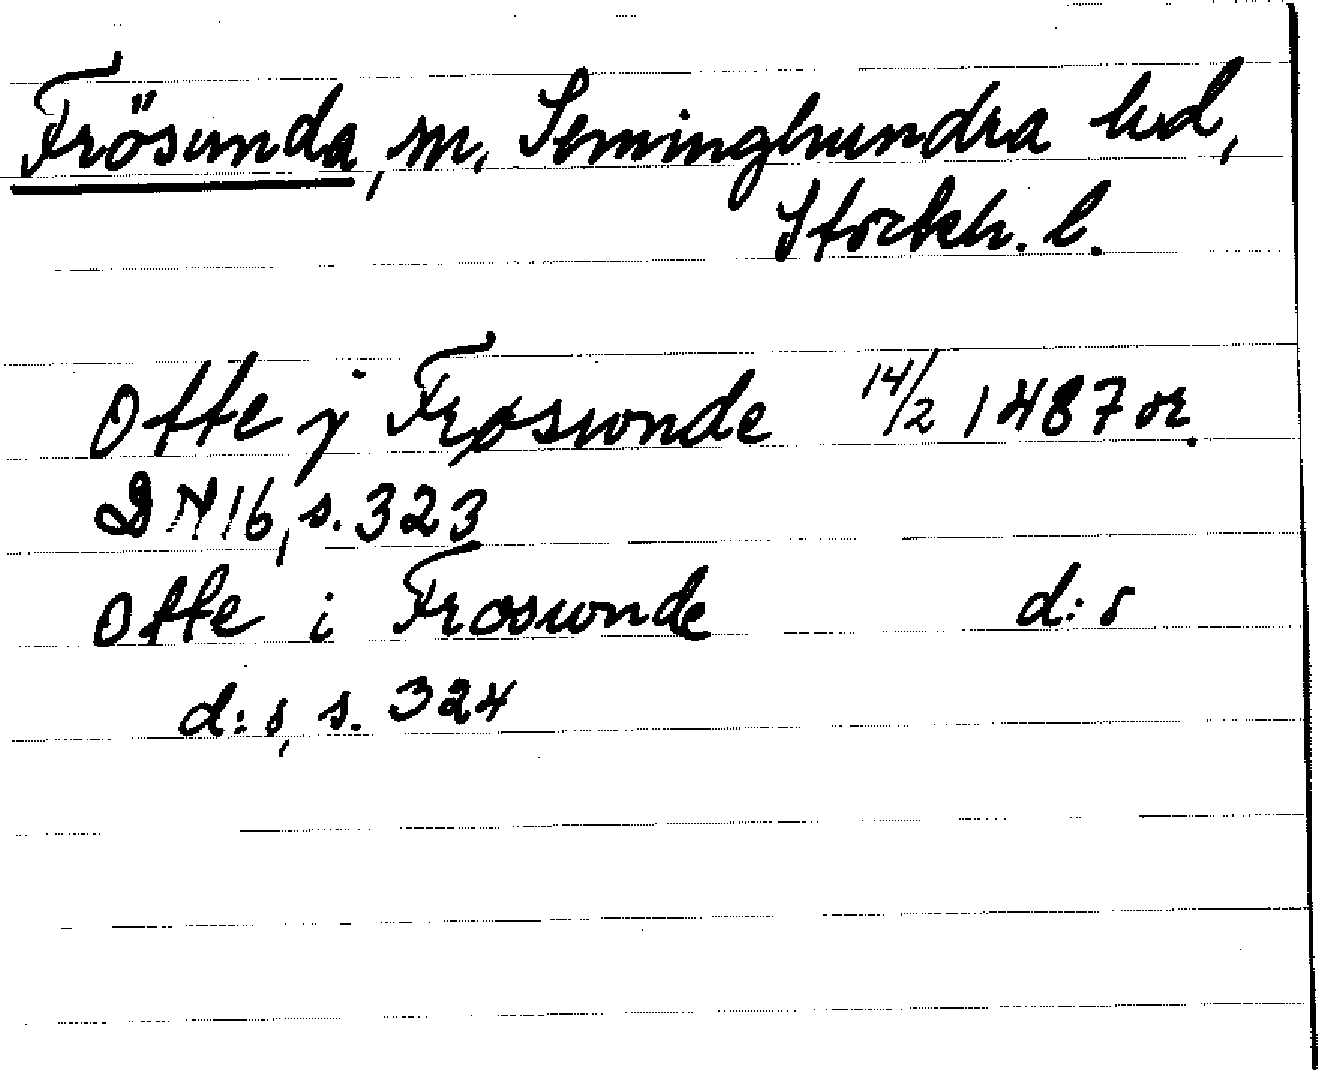 Frösunda, sn, Seminghundra hd,
Stockh. l.
Otte j Frøswnde 14/2 1487 or.
DN 16, s. 323
Otte i Froswnde d:s
d:s, s. 324